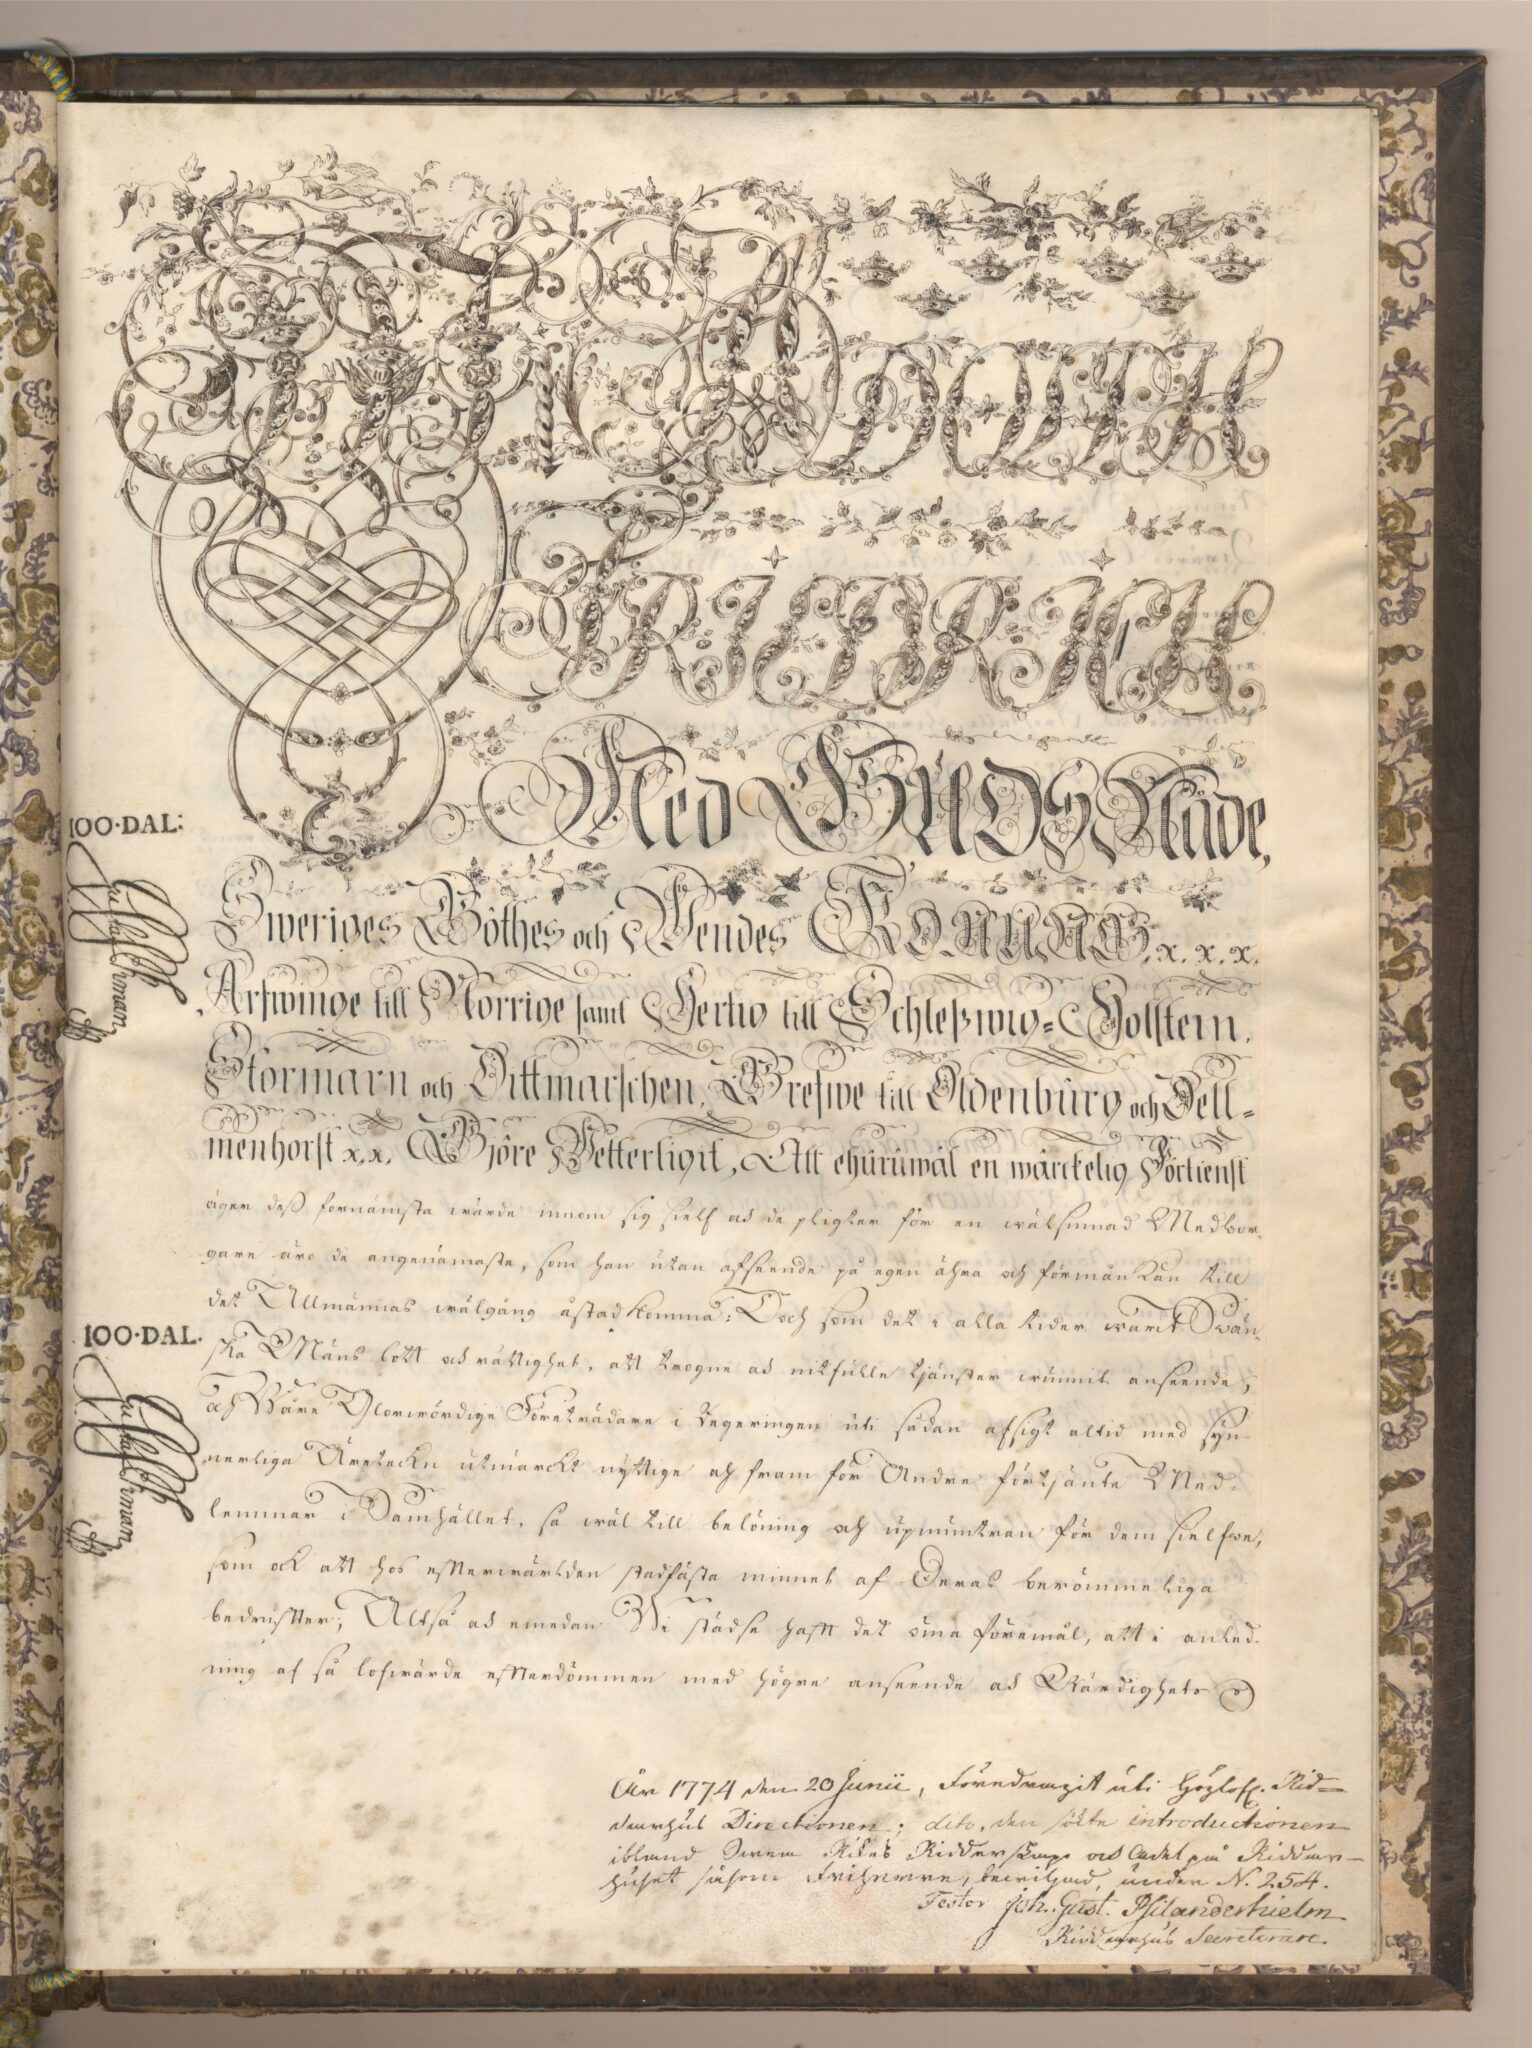 Wi Adolph
Fridrich
Med Guds Nåde,
Sweriges Göthes och Wendes Konung. x. x. x.
Arfwinge till Norrige samt Hertig till Schleßwig=Holstein,
Stormarn och Dittmarschen, Grefwe till Oldenburg och Dell=
menhorst x.x. Gjöre Wetterligit, Att ehuruwäl en wärckelig Förtienst
äger deß fornämsta wärde innom sig sielf och de pligter för en wälsinnad Medbor-
gare äro de angenämaste, som han utan afseende på egen ähra och förmån kan till
det Allmännas wälgång åstadkomma; Doch som det i alla tider warit Swän-
ska Mäns lott och rättighet, att trogne och nitfulle tjänster wunnit anseende,
och Wåre Glorwördige Företrädare i Regeringen uti sådan afsigt altid med syn-
nerliga Äretechn utmärckt nyttige och fram för Andra förtjänte Med-
lemmar i Samhället, så wäl till belöning och upmuntran för dem sielfwe,
som ock att hos efterwärlden stadfästa minnet af Deras berömmeliga
bedrifter; Altså och emedan Wi städse haft det öma föremål, att i anled-
ning af så lofwärde efterdömmen med högre anseende och Wärdighets
100·DAL:
Gustaf Kierman
100·DAL.
Gustaf Kierman
År 1774 den 20 Junii, Föredragit uti Höglofl. Rid=
darhus Directionen; dito, den sökte introductionen
ibland Swea Rikes Ridderskap och Adel på Riddar=
huset såsom Friherre, bewiljad, under N. 254.
Testor Joh. Gust. Psilanderhielm
Riddarhus Secreterare.